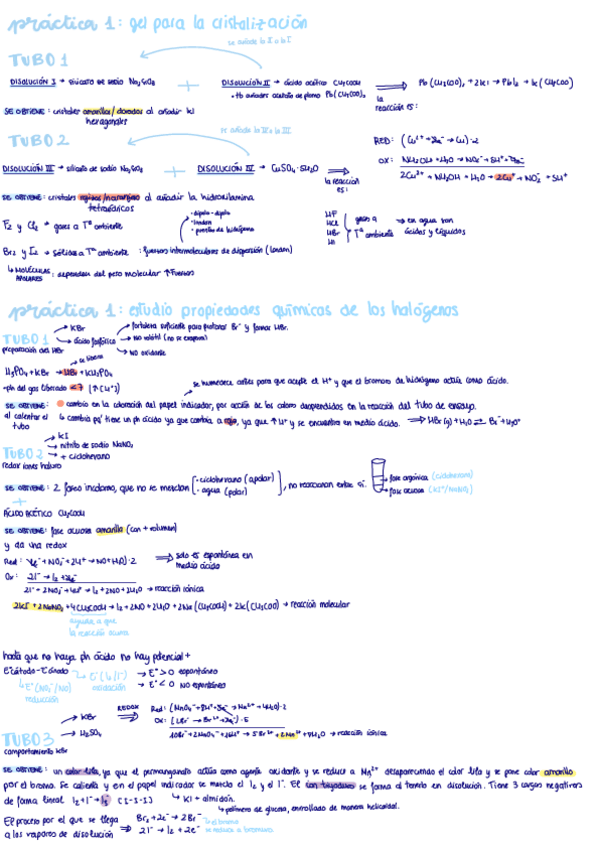 práctica 1: gel para la cristalización
se añade la II a la I
TUBO 1
DISOLUCIÓN I → silicato de sodio Na₂SiO₃ + DISOLUCIÓN II → ácido acético CH₃COOH ⟹ Pb(CH₃COO)₂ + 2KI → PbI₂ + K(CH₃COO)
+ tb añadimos acetato de plomo Pb(CH₃COO)₂ la reacción es:
SE OBTIENE: cristales amarillos/dorados al añadir KI
hexagonales
se añade la IV a la III
TUBO 2
RED: (Cu²⁺ + 2e⁻ → Cu)·2
DISOLUCIÓN III → silicato de sodio Na₂SiO₃ + DISOLUCIÓN IV → CuSO₄·5H₂O ⟹ la reacción es:
OX: NH₂OH + H₂O → NO₂⁻ + 5H⁺ + 4e⁻
2Cu²⁺ + NH₂OH + H₂O → 2Cu⁰ + NO₂⁻ + 5H⁺
SE OBTIENE: cristales rojizos/naranjas al añadir la hidroxilamina
tetraédricos
F₂ y Cl₂ → gases a Tª ambiente
· dipolo-dipolo
· london
· puentes de hidrógeno
HF
HCl
HBr
HI
gases a Tª ambiente → en agua son ácidos y líquidos
Br₂ y I₂ → sólidos a Tª ambiente : fuerzas intermoleculares de dispersión (london)
↳ MOLÉCULAS APOLARES : dependen del peso molecular ↑ fuerzas
práctica 1: estudio propiedades químicas de los halógenos
TUBO 1 → KBr
→ ácido fosfórico → fortaleza suficiente para protonar Br⁻ y formar HBr.
→ NO volátil (no se evapora)
→ NO oxidante
preparación del HBr
se libera
H₃PO₄ + KBr → HBr + KH₂PO₄
-ph del gas liberado < 7 (↑[H⁺])
→ se humedece antes para que acepte el H⁺ y que el bromuro de hidrógeno actúe como ácido.
SE OBTIENE: cambio en la coloración del papel indicador, por acción de los vapores desprendidos en la reacción del tubo de ensayo.
al calentar el tubo ↳ cambia pq' tiene un ph ácido ya que cambia a rojo, ya que ↑ H⁺ y se encuentra en medio ácido. ⟹ HBr(g) + H₂O ⇌ Br⁻ + H₃O⁺
TUBO 2 → KI
→ nitrito de sodio NaNO₂
→ + ciclohexano
redox iones haluro
SE OBTIENE: 2 fases incoloras, que no se mezclan [· ciclohexano (apolar) · agua (polar)], no reaccionan entre sí.
→ fase orgánica (ciclohexano)
→ fase acuosa (KI + NaNO₂)
+
ÁCIDO ACÉTICO CH₃COOH
SE OBTIENE: fase acuosa amarilla (con + volumen)
y da una redox
Red: (1e⁻ + NO₂⁻ + 2H⁺ → NO + H₂O)·2 ⟹ solo es espontánea en medio ácido
Ox: 2I⁻ → I₂ + 2e⁻
2I⁻ + 2NO₂⁻ + 4H⁺ → I₂ + 2NO + 2H₂O → reacción iónica
2KI + 2NaNO₂ + 4CH₃COOH → I₂ + 2NO + 2H₂O + 2Na(CH₃COO) + 2K(CH₃COO) → reacción molecular
ayuda a que la reacción ocurra
hasta que no haya ph ácido no hay potencial +
E°cátodo - E°ánodo
↳ E°(NO₂⁻/NO) reducción
↳ E°(I₂/I⁻) oxidación
→ E° > 0 espontáneo
→ E° < 0 NO espontáneo
TUBO 3 → KBr
→ H₂SO₄
REDOX ⟹
Red: (MnO₄⁻ + 8H⁺ + 5e⁻ → Mn²⁺ + 4H₂O)·2
OX: (2Br⁻ → Br₂ + 2e⁻)·5
10Br⁻ + 2MnO₄⁻ + 16H⁺ → 5Br₂ + 2Mn²⁺ + 8H₂O → reacción iónica
comportamiento KBr
SE OBTIENE: un color lila, ya que el permanganato actúa como agente oxidante y se reduce a Mn²⁺ desapareciendo el color lila y se pone color amarillo
por el bromo. Se calienta y en el papel indicador se mezcla el I₂ y el I⁻. El ion triyoduro se forma al tenerlo en disolución. Tiene 3 cargas negativas
de forma lineal I₂ + I⁻ → I₃⁻ [I-I-I] ↳ KI + almidón.
↳ polímero de glucosa, enrollado de manera helicoidal.
El proceso por el que se llega a los vapores de disolución ⟹ Br₂ + 2e⁻ → 2Br⁻
2I⁻ → I₂ + 2e⁻
↳ el bromo se reduce a bromuro